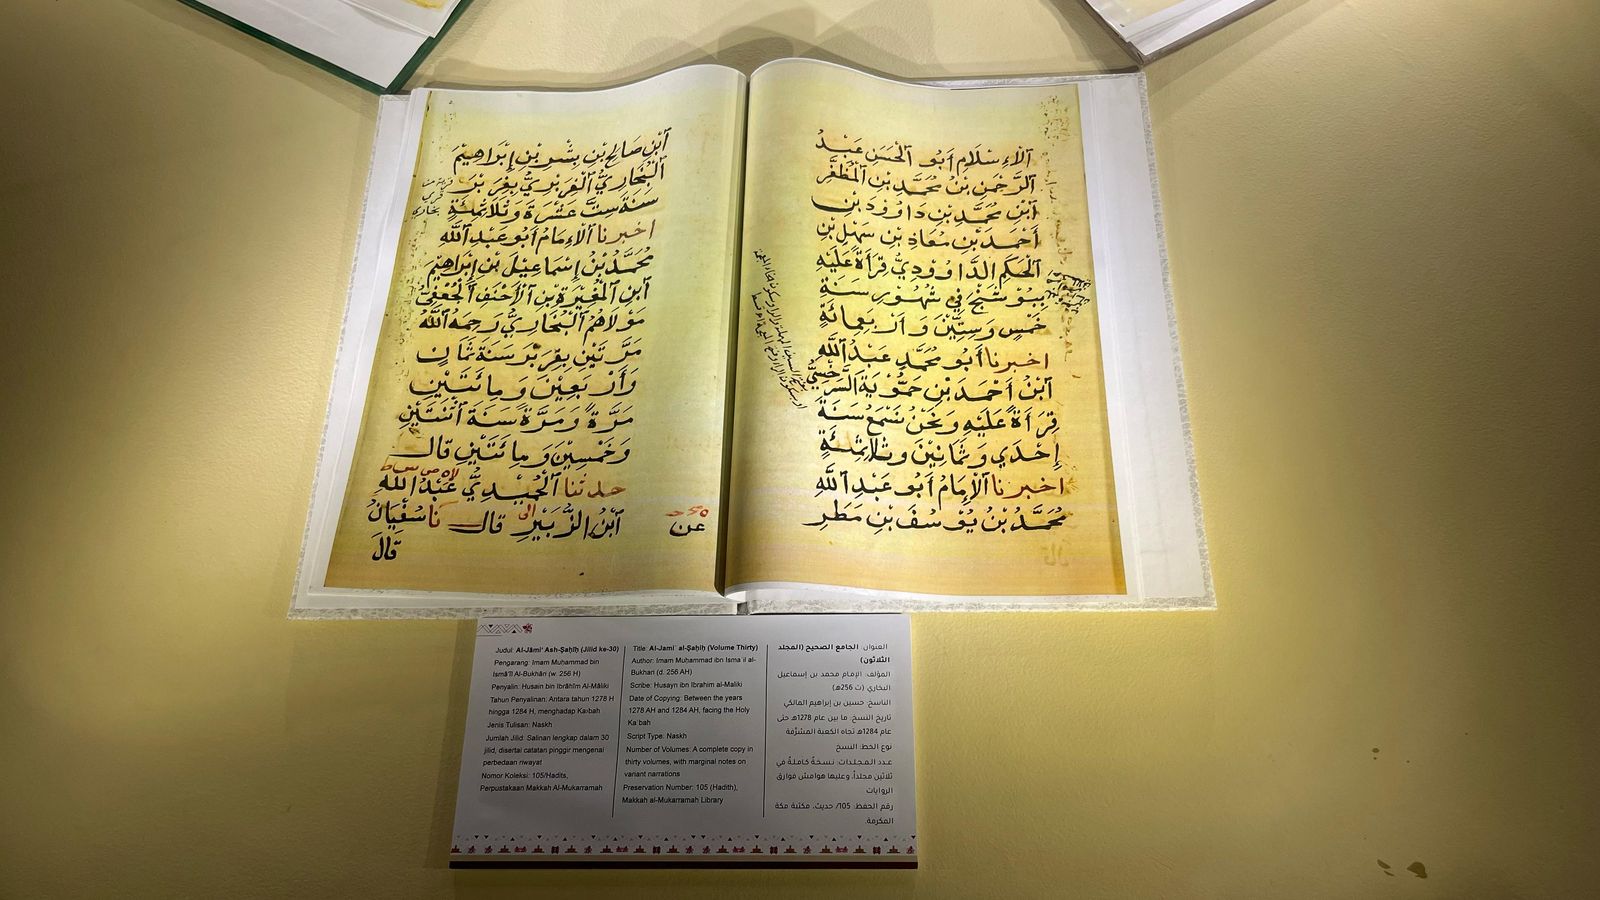 الاسلام أبو الحسن عبد
الرحمن بن محمد بن المظفر
ابن محمد بن داوود بن
أحمد بن معاذ بن سهل بن
الحكم الداوودي قراءة عليه
ببوشنج في شهور سنة
خمس وستين وأربعمائة
اخبرنا أبو محمد عبد الله
ابن أحمد بن حمويه السرخسي
قراءة عليه ونحن نسمع سنة
إحدي وثمانين وثلاثمئة
اخبرنا الإمام أبو عبد الله
محمد بن يوسف بن مطر
ابن صالح بن بشر بن إبراهيم
البخاري الفربري بفربر
سنة ست عشرة وثلاثمئة
اخبرنا الامام أبو عبد الله
محمد بن إسماعيل بن إبراهيم
ابن المغيرة بن الأحنف الجعفي
مولاهم البخاري رحمه الله
مرتين بفربر سنة ثمان
وأربعين ومائتين
مرة ومرة سنة اثنتين
وخمسين ومائتين قال
حدثنا الحميدي عبد الله
ابن الزبير قال نا سفيان
عن
قال
Judul: Al-Jāmi‘ Ash-Ṣaḥīḥ (Jilid ke-30)
Pengarang: Imam Muḥammad bin
Ismā‘īl Al-Bukhārī (w. 256 H)
Penyalin: Husain bin Ibrāhīm Al-Māliki
Tahun Penyalinan: Antara tahun 1278 H
hingga 1284 H, menghadap Ka‘bah
Jenis Tulisan: Naskh
Jumlah Jilid: Salinan lengkap dalam 30
jilid, disertai catatan pinggir mengenai
perbedaan riwayat
Nomor Koleksi: 105/Hadits,
Perpustakaan Makkah Al-Mukarramah
Title: Al-Jami‘ al-Ṣaḥīḥ (Volume Thirty)
Author: Imam Muhammad ibn Isma‘il al-
Bukhari (d. 256 AH)
Scribe: Husayn ibn Ibrahim al-Maliki
Date of Copying: Between the years
1278 AH and 1284 AH, facing the Holy
Ka‘bah
Script Type: Naskh
Number of Volumes: A complete copy in
thirty volumes, with marginal notes on
variant narrations
Preservation Number: 105 (Hadith),
Makkah al-Mukarramah Library
العنوان: الجامع الصحيح (المجلد
الثلاثون)
المؤلف: الإمام محمد بن إسماعيل
البخاري (ت 256هـ)
الناسخ: حسين بن إبراهيم المالكي
تاريخ النسخ: ما بين عام 1278هـ حتى
عام 1284هـ تجاه الكعبة المشرّفة
نوع الخط: النسخ
عدد المجلدات: نسخةٌ كاملةٌ في
ثلاثين مجلداً، وعليها هوامش فوارق
الروايات
رقم الحفظ: 105/ حديث، مكتبة مكة
المكرمة.